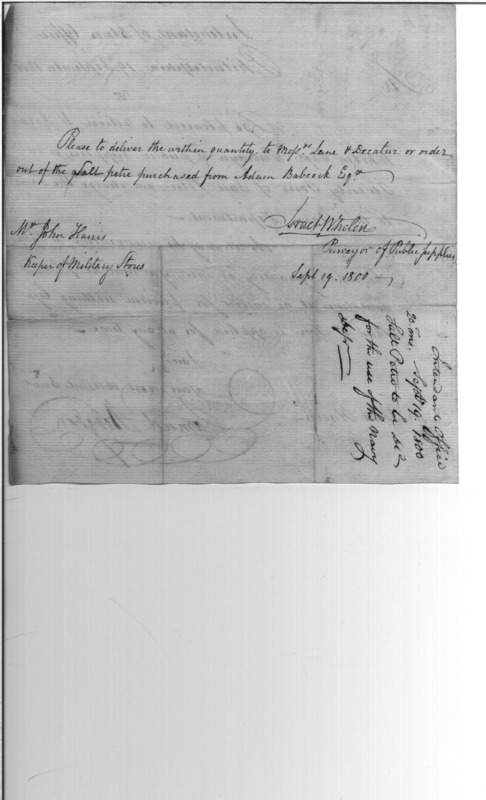 Please to deliver the within quantity, to Mess.rs Lane & Decatur or order
out of the Salt petre purchased from Adam Babcock Esq.r
Israel Whelen
Purveyor of Public Supplies
Mr. John Harris
Keeper of Military Stores
Sept 19. 1800
Intendants Office
Sept 19. 1800
20 Tons.
Salt Petre to be
for the use of the Navy